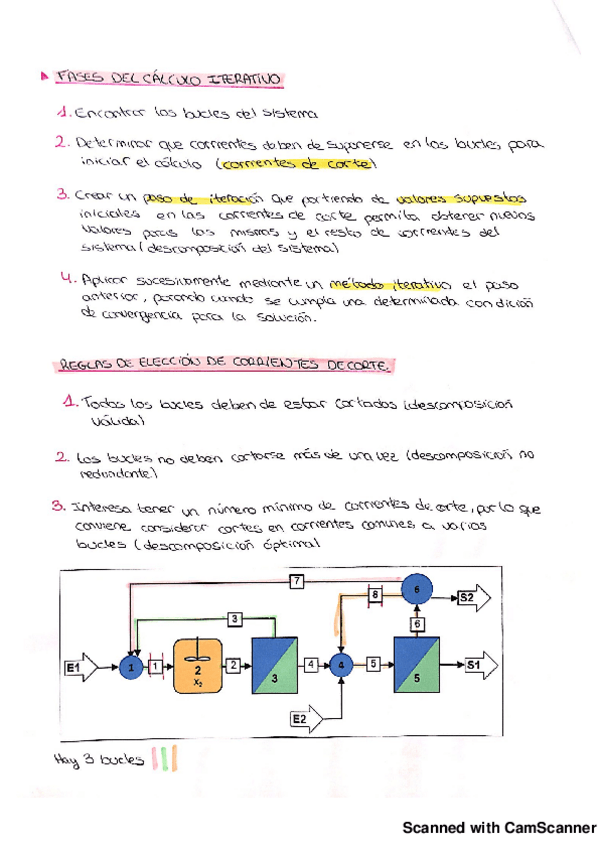 FASES DEL CÁLCULO ITERATIVO
1. Encontrar los bucles del sistema
2. Determinar que corrientes deben de suponerse en los bucles para
iniciar el cálculo (corrientes de corte)
3. Crear un paso de iteración que partiendo de valores supuestos
iniciales en las corrientes de corte permita obtener nuevos
valores para las mismas y el resto de corrientes del
sistema (descomposición del sistema)
4. Aplicar sucesivamente mediante un método iterativo el paso
anterior, parando cuando se cumpla una determinada condición
de convergencia para la solución.
REGLAS DE ELECCIÓN DE CORRIENTES DE CORTE.
1. Todos los bucles deben de estar cortados (descomposición
válida)
2. Los bucles no deben cortarse más de una vez (descomposición no
redundante)
3. Interesa tener un número mínimo de corrientes de corte, por lo que
conviene considerar cortes en corrientes comunes a varios
bucles (descomposición óptima)
7
8
6
S2
3
6
E1
1
1
2
X2
2
3
4
4
5
5
S1
E2
Hay 3 bucles
Scanned with CamScanner